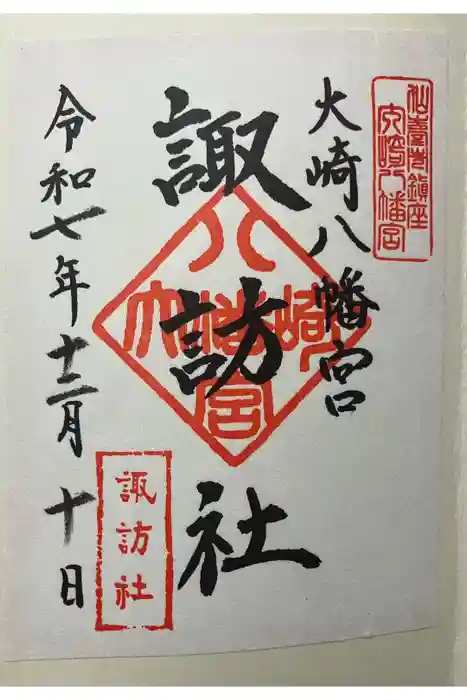 仙臺市鎮座
大崎八幡宮
大崎八幡宮
諏訪社
大崎八幡宮
諏訪社
令和七年十二月十日